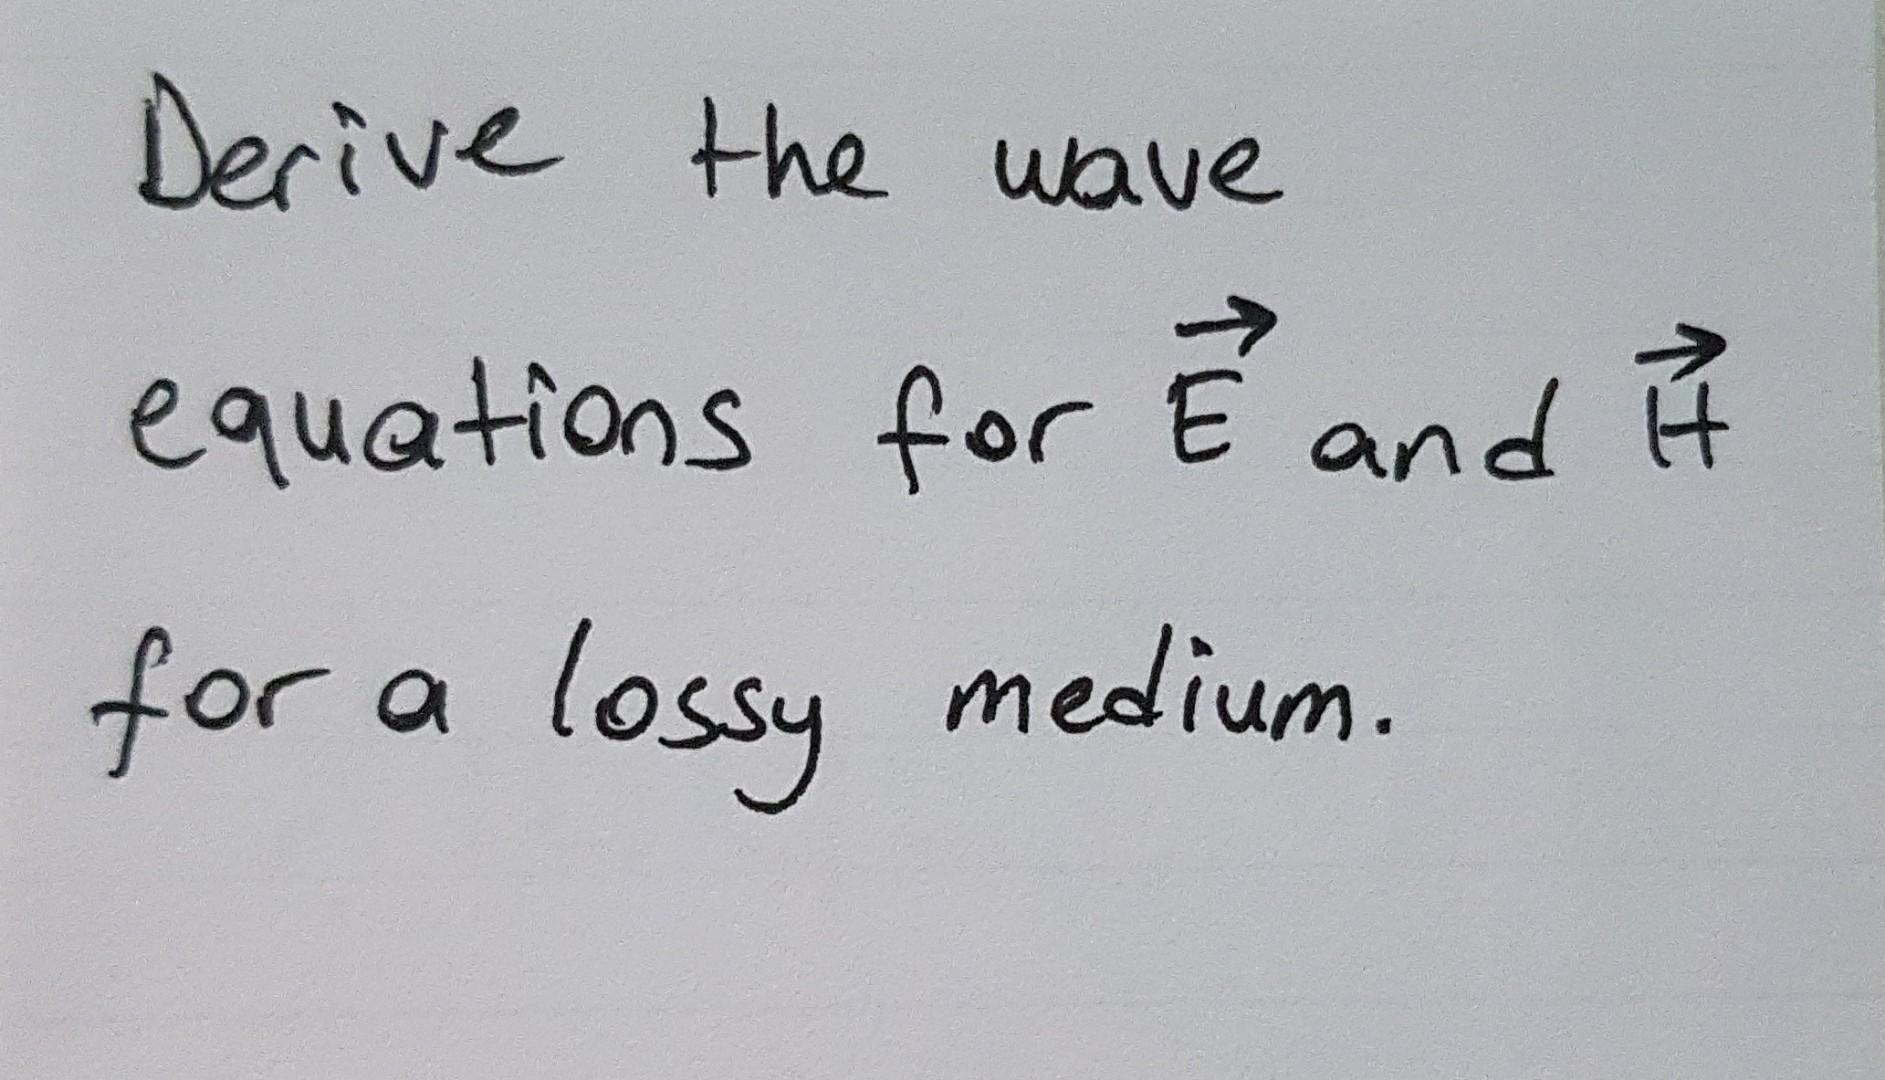 Derive the wave
equations for E⃗ and H⃗
for a lossy medium.